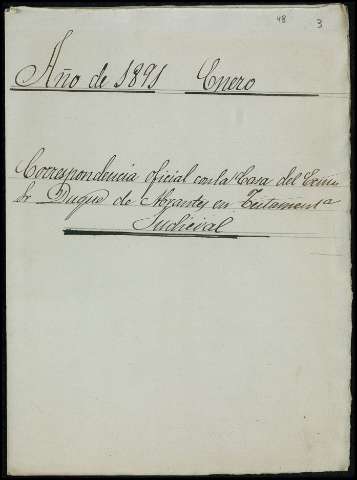 48 3
Año de 1891 Enero
Correspondencia oficial con la Casa del Exmo
Sr Duque de Abrantes en Testamentª
Judicial